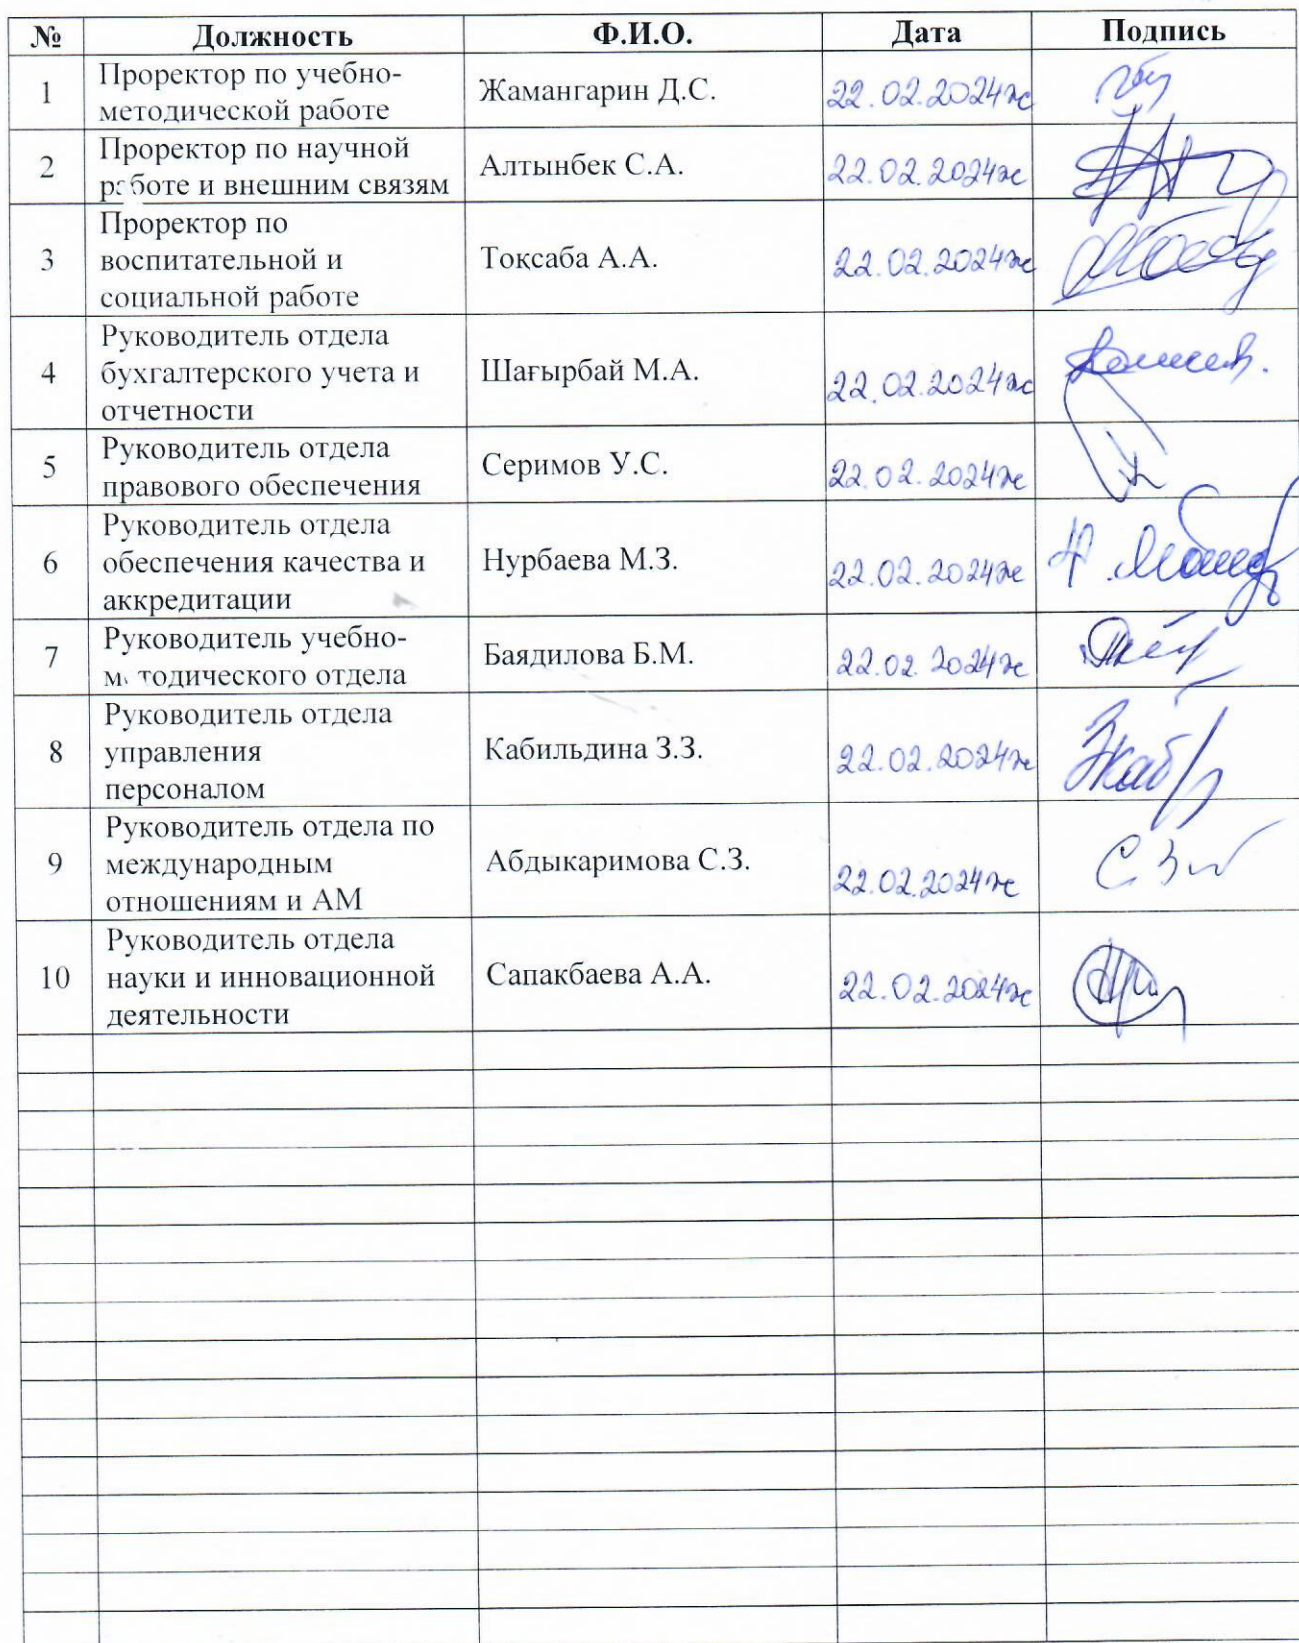 № Должность Ф.И.О. Дата Подпись
1 Проректор по учебно-
методической работе Жамангарин Д.С. 22.02.2024ж
2 Проректор по научной
работе и внешним связям Алтынбек С.А. 22.02.2024ж
3 Проректор по
воспитательной и
социальной работе Токсаба А.А. 22.02.2024ж
4 Руководитель отдела
бухгалтерского учета и
отчетности Шағырбай М.А. 22.02.2024ж
5 Руководитель отдела
правового обеспечения Серимов У.С. 22.02.2024ж
6 Руководитель отдела
обеспечения качества и
аккредитации Нурбаева М.З. 22.02.2024ж
7 Руководитель учебно-
методического отдела Баядилова Б.М. 22.02.2024ж
8 Руководитель отдела
управления
персоналом Кабильдина З.З. 22.02.2024ж
9 Руководитель отдела по
международным
отношениям и АМ Абдыкаримова С.З. 22.02.2024ж
10 Руководитель отдела
науки и инновационной
деятельности Сапакбаева А.А. 22.02.2024ж